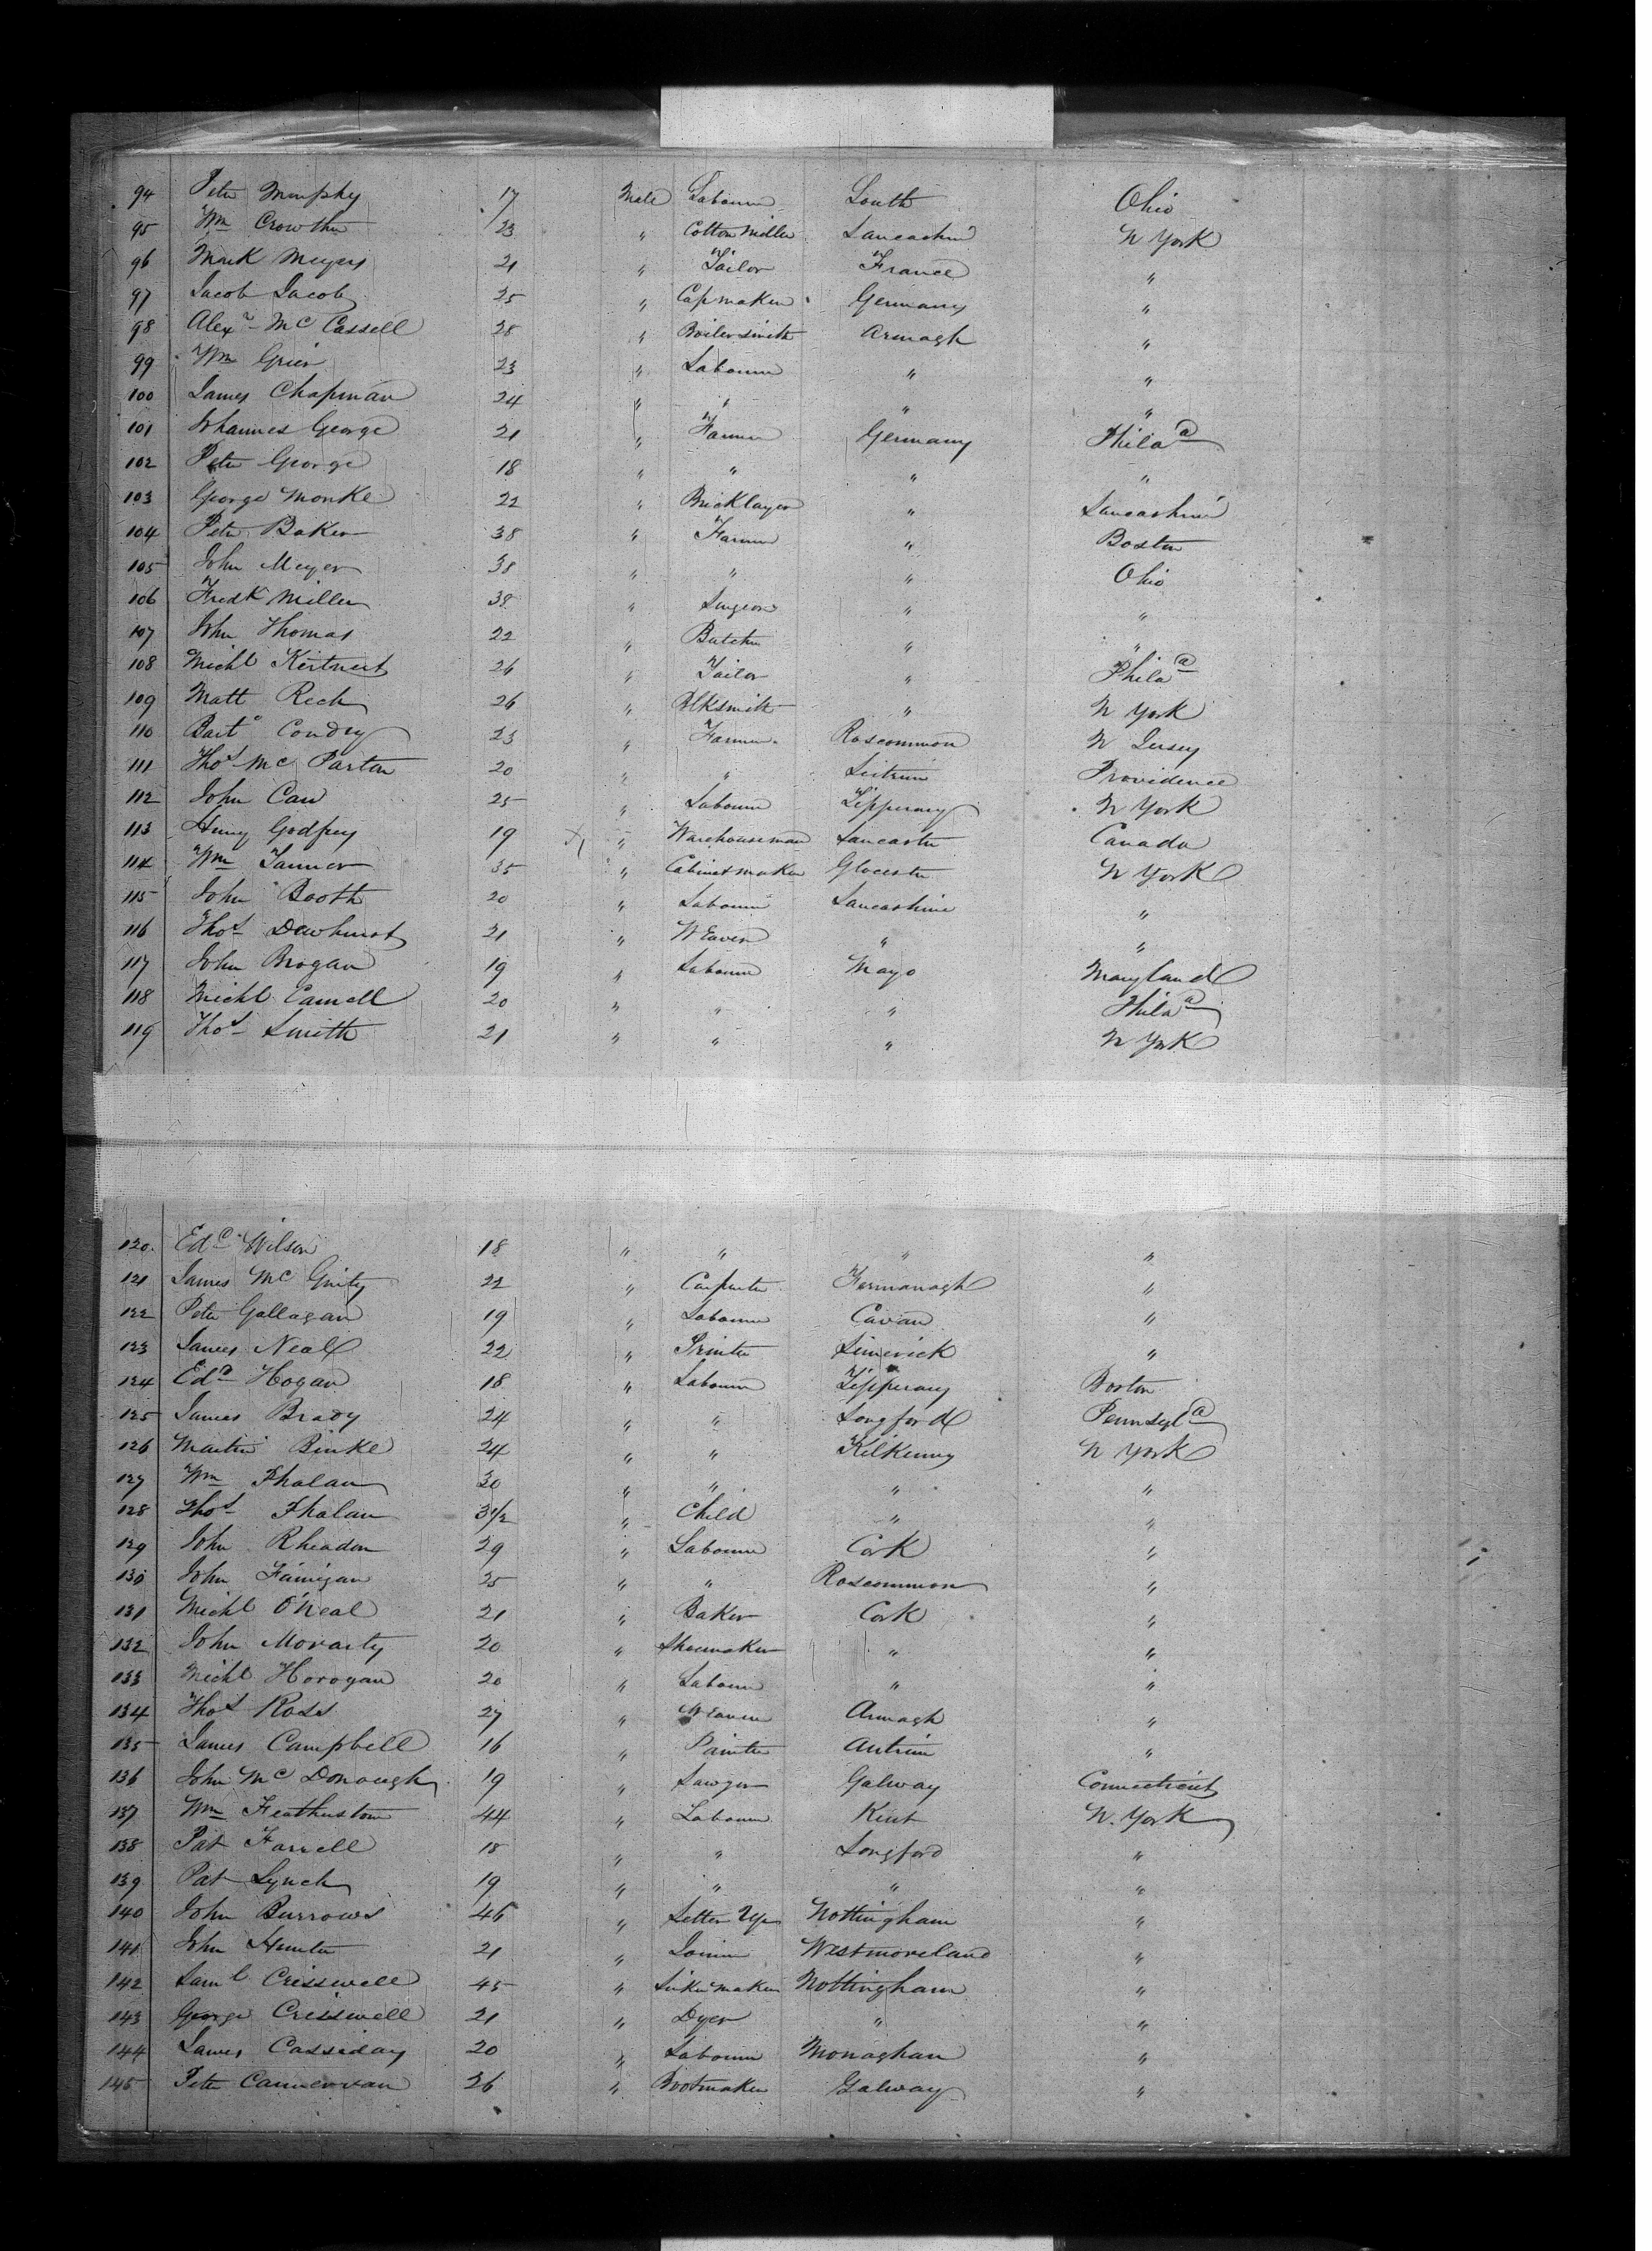 94 Peter Murphy 17 Male Labourer Louth Ohio
95 Wm Crowther 23 " Cotton Miller Lancashire N York
96 Mark Meyers 21 " Tailor France "
97 Jacob Jacobs 25 " Capmaker Germany "
98 Alexr Mc Cassell 28 " Boilersmith Armagh "
99 Wm Grier 23 " Labourer " "
100 James Chapman 24 " " " "
101 Johannes George 21 " Farmer Germany Phila
102 Peter George 18 " " " "
103 George Monke 22 " Bricklayer " Lancashire
104 Peter Baker 38 " Farmer " Boston
105 John Meyer 38 " " " Ohio
106 Fredk Miller 38 " Surgeon " "
107 John Thomas 22 " Butcher " "
108 Michl 26 " Tailor " Phila
109 Matt Rech 26 " Blksmith " N York
110 Barto Condry 23 " Farmer Roscommon N Jersey
111 Thos Mc Parton 20 " " Leitrim Providence
112 John Carr 25 " Labourer Tipperary N York
113 Henry Godfrey 19 X " Warehouseman Lancaster Canada
114 Wm Tanner 35 " Cabinetmaker Glocester N York
115 John Booth 20 " Labourer Lancashire "
116 Thos Dewhurst 21 " Weaver " "
117 John Brogan 19 " Labourer Mayo Maryland
118 Michl 20 " " " Phila
119 Thos Smith 21 " " " N York
120 Edd Wilson 18 " " " "
121 James Mc Ginty 22 " Carpenter Fermanagh "
122 Peter Gallagan 19 " Labourer Cavan "
123 James Neal 22 " Printer Limerick "
124 Edd Hogan 18 " Labourer Tipperary Boston
125 James Brady 24 " " Longford Pennsyla
126 Martin Binke 24 " " Kilkenny N York
127 Wm Phalan 30 " " " "
128 Thos Phalan 3 1/2 " Child " "
129 John Rheadon 29 " Labourer Cork "
130 John Fainigan 25 " " Roscommon "
131 Michl O'Neal 21 " Baker Cork "
132 John Morarty 20 " Shoemaker " "
133 Michl Horogan 20 " Labourer " "
134 Thos Ross 27 " Weaver Armagh "
135 James Campbell 16 " Painter Antrim "
136 John Mc Donough 19 " Sawyer Galway Connecticut
137 Wm Featherstone 44 " Labourer Kent N. York
138 Pat Farrell 18 " " Longford "
139 Pat Lynch 19 " " " "
140 John Burrows 46 " Setter Up Nottingham "
141 John Hunter 21 " Joiner Westmoreland "
142 Saml Crisswell 45 " Sinker Maker Nottingham "
143 George Crisswell 21 " Dyer " "
144 James Cassiday 20 " Labourer Monaghan "
145 Peter Cannervan 26 " Bootmaker Galway "